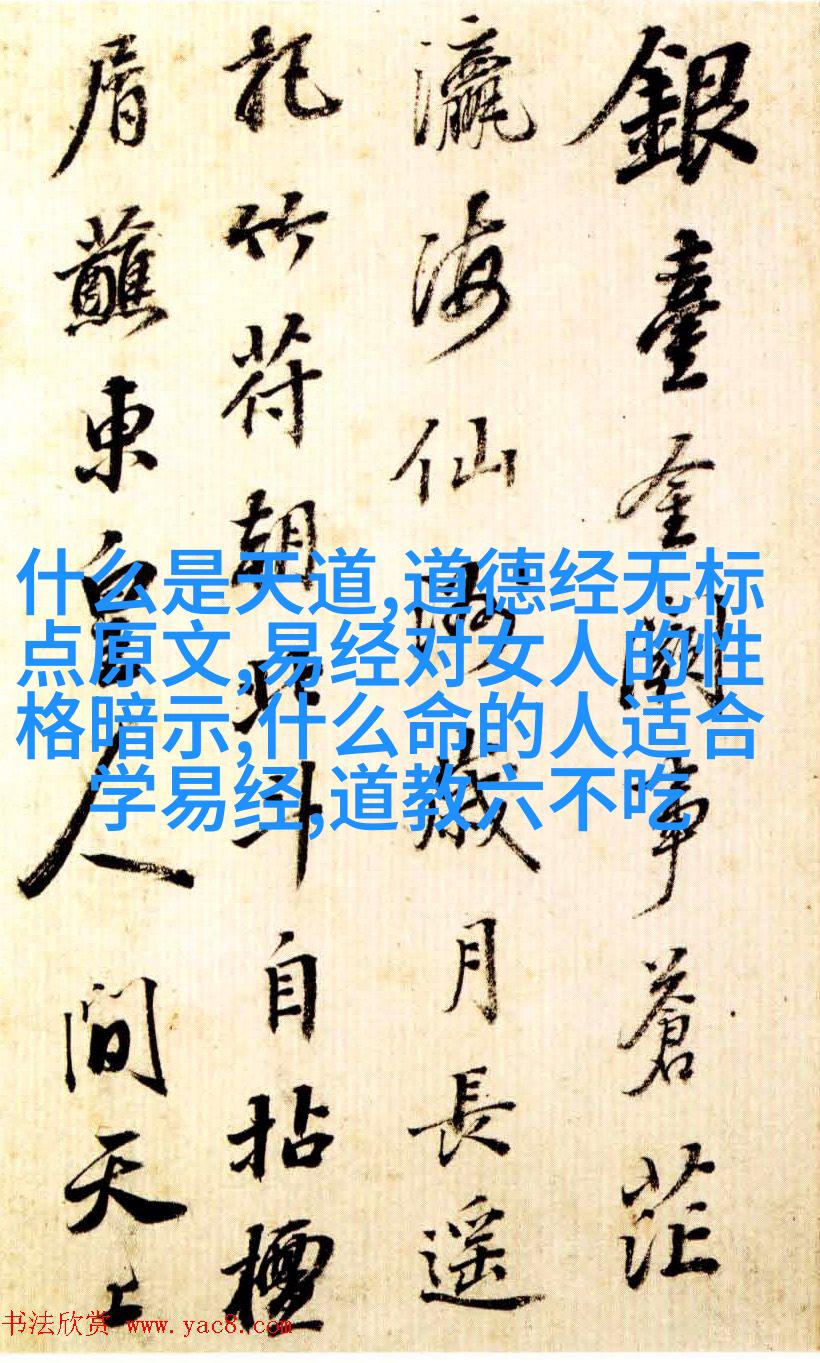 銀臺金闕事蒼茫
瀛海仙
歲月長遥
竹符朝北斗自拈檀
屑蘸東皇人間天上
什么是天道,道德经无标
点原文,易经对女人的性
格暗示,什么命的人适合
学易经,道教六不吃
书法欣赏 www.yac8.com